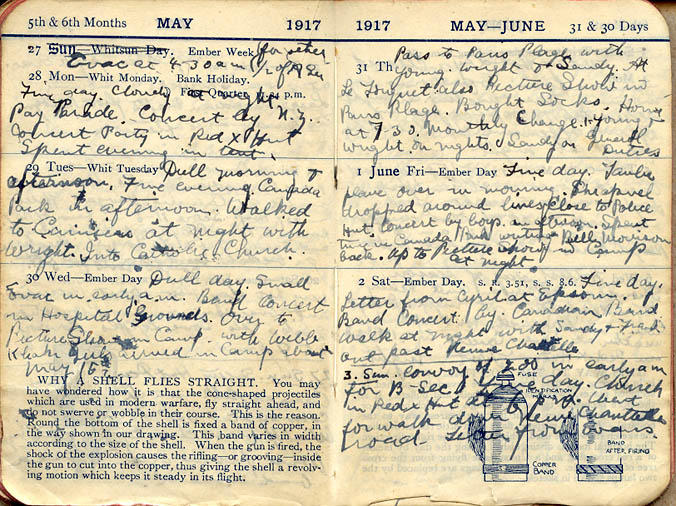 5th & 6th Months MAY 1917
27 Sun—Whitsun Day. Ember Week
Evac at 4.30 am
28 Mon—Whit Monday. Bank Holiday.
Fine day. Cloudy at night
First Quarter
Pay Parade. Concert by N.Z.
Concert Party in Red X Hut
Spent evening in tent.
29 Tues—Whit Tuesday Dull morning &
afternoon. Fine evening. Canada
Park in afternoon. Walked
to at night with
Wright. Into Catholic Church.
30 Wed—Ember Day Dull day. Small
Evac in early a.m. Band Concert
in Hospital Grounds. Over to
Picture Show in Camp with Webb
Khaki arrived in Camp about
May 15
WHY A SHELL FLIES STRAIGHT. You may
have wondered how it is that the cone-shaped projectiles
which are used in modern warfare, fly straight ahead, and
do not swerve or wobble in their course. This is the reason.
Round the bottom of the shell is fixed a band of copper, in
the way shown in our drawing. This band varies in width
according to the size of the shell. When the gun is fired, the
shock of the explosion causes the rifling—or grooving—inside
the gun to cut into the copper, thus giving the shell a revolv-
ing motion which keeps it steady in its flight.
1917 MAY—JUNE 31 & 30 Days
Pass to Paris Plage with
31 Th Young, Wright & Sandy. At
Le Touquet also Picture Show in
Paris Plage. Bought Socks. Home
at 7.30. Monthly Change. Young &
Wright on nights. Sandy on General
Duties
1 June Fri—Ember Day Fine day. Taube
plane over in morning. Shrapnel
dropped around lines close to Police
Hut. Concert by boys in afternoon. Spent
time in Canada Hut writing. Bill Morrison
back. Up to Picture Show in Camp
at night
2 Sat—Ember Day. S. R. 3.51, S. S. 8.6. Fine day.
Letter from Cyril at Epsom.
Band Concert by Canadian Band
Walk at night with Sandy & Frank
out past
3. Sun. Convoy of 200 in early am
for B-Sec Fine day. Church
in Red X Hut at Went
for walk
road. Letter from
FUSE
IDENTIFICATION
BAND
COPPER
BAND
BAND
AFTER FIRING